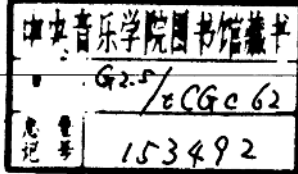 中央音乐学院图书馆藏书
书号
G2.5/tCGc62
总登
记号
153492